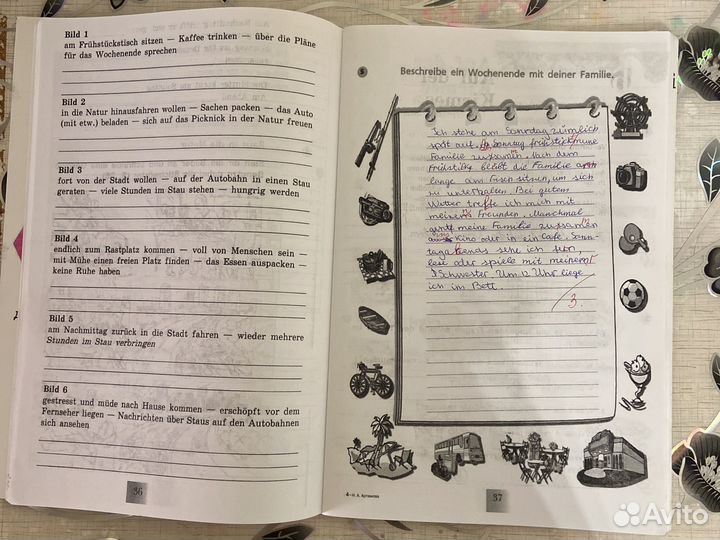 Bild 1
am Frühstückstisch sitzen — Kaffee trinken — über die Pläne
für das Wochenende sprechen
Bild 2
in die Natur hinausfahren wollen — Sachen packen — das Auto
(mit etw.) beladen — sich auf das Picknick in der Natur freuen
Bild 3
fort von der Stadt wollen — auf der Autobahn in einen Stau
geraten — viele Stunden im Stau stehen — hungrig werden
Bild 4
endlich zum Rastplatz kommen — voll von Menschen sein —
mit Mühe einen freien Platz finden — das Essen auspacken —
keine Ruhe haben
Bild 5
am Nachmittag zurück in die Stadt fahren — wieder mehrere
Stunden im Stau verbringen
Bild 6
gestresst und müde nach Hause kommen — erschöpft vor dem
Fernseher liegen — Nachrichten über Staus auf den Autobahnen
sich ansehen
36
5
Beschreibe ein Wochenende mit deiner Familie.
Ich stehe am Sonntag zimlich
spät auf. Sonntag frühstückt meine
Familie zusamen. Nach dem
Frühstück bleibt die Familie
lange am Tisch sitzen, um sich
zu unterhalten. Bei gutem
Wetter treffe ich mich mit
meinen Freunden. Manchmal
geht meine Familie zusamen
Kino oder in ein Café. Sonn-
tags abends sehe ich fern,
lese oder spiele mit meiner
Schwester. Um 12 Uhr liege
ich im Bett.
3.
4—Н. А. Артемова
37
Avito